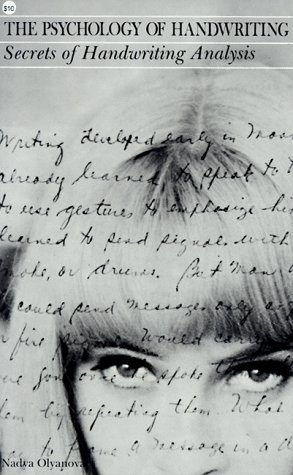 $10
THE PSYCHOLOGY OF HANDWRITING
Secrets of Handwriting Analysis
Writing developed early in
already learned to speak to
to use gestures to emphasize
learned to send signals with
or drums. But man
could send messages only
or fire Would
spoke
by repeating them. What
a message in a
Nadya Olyanova